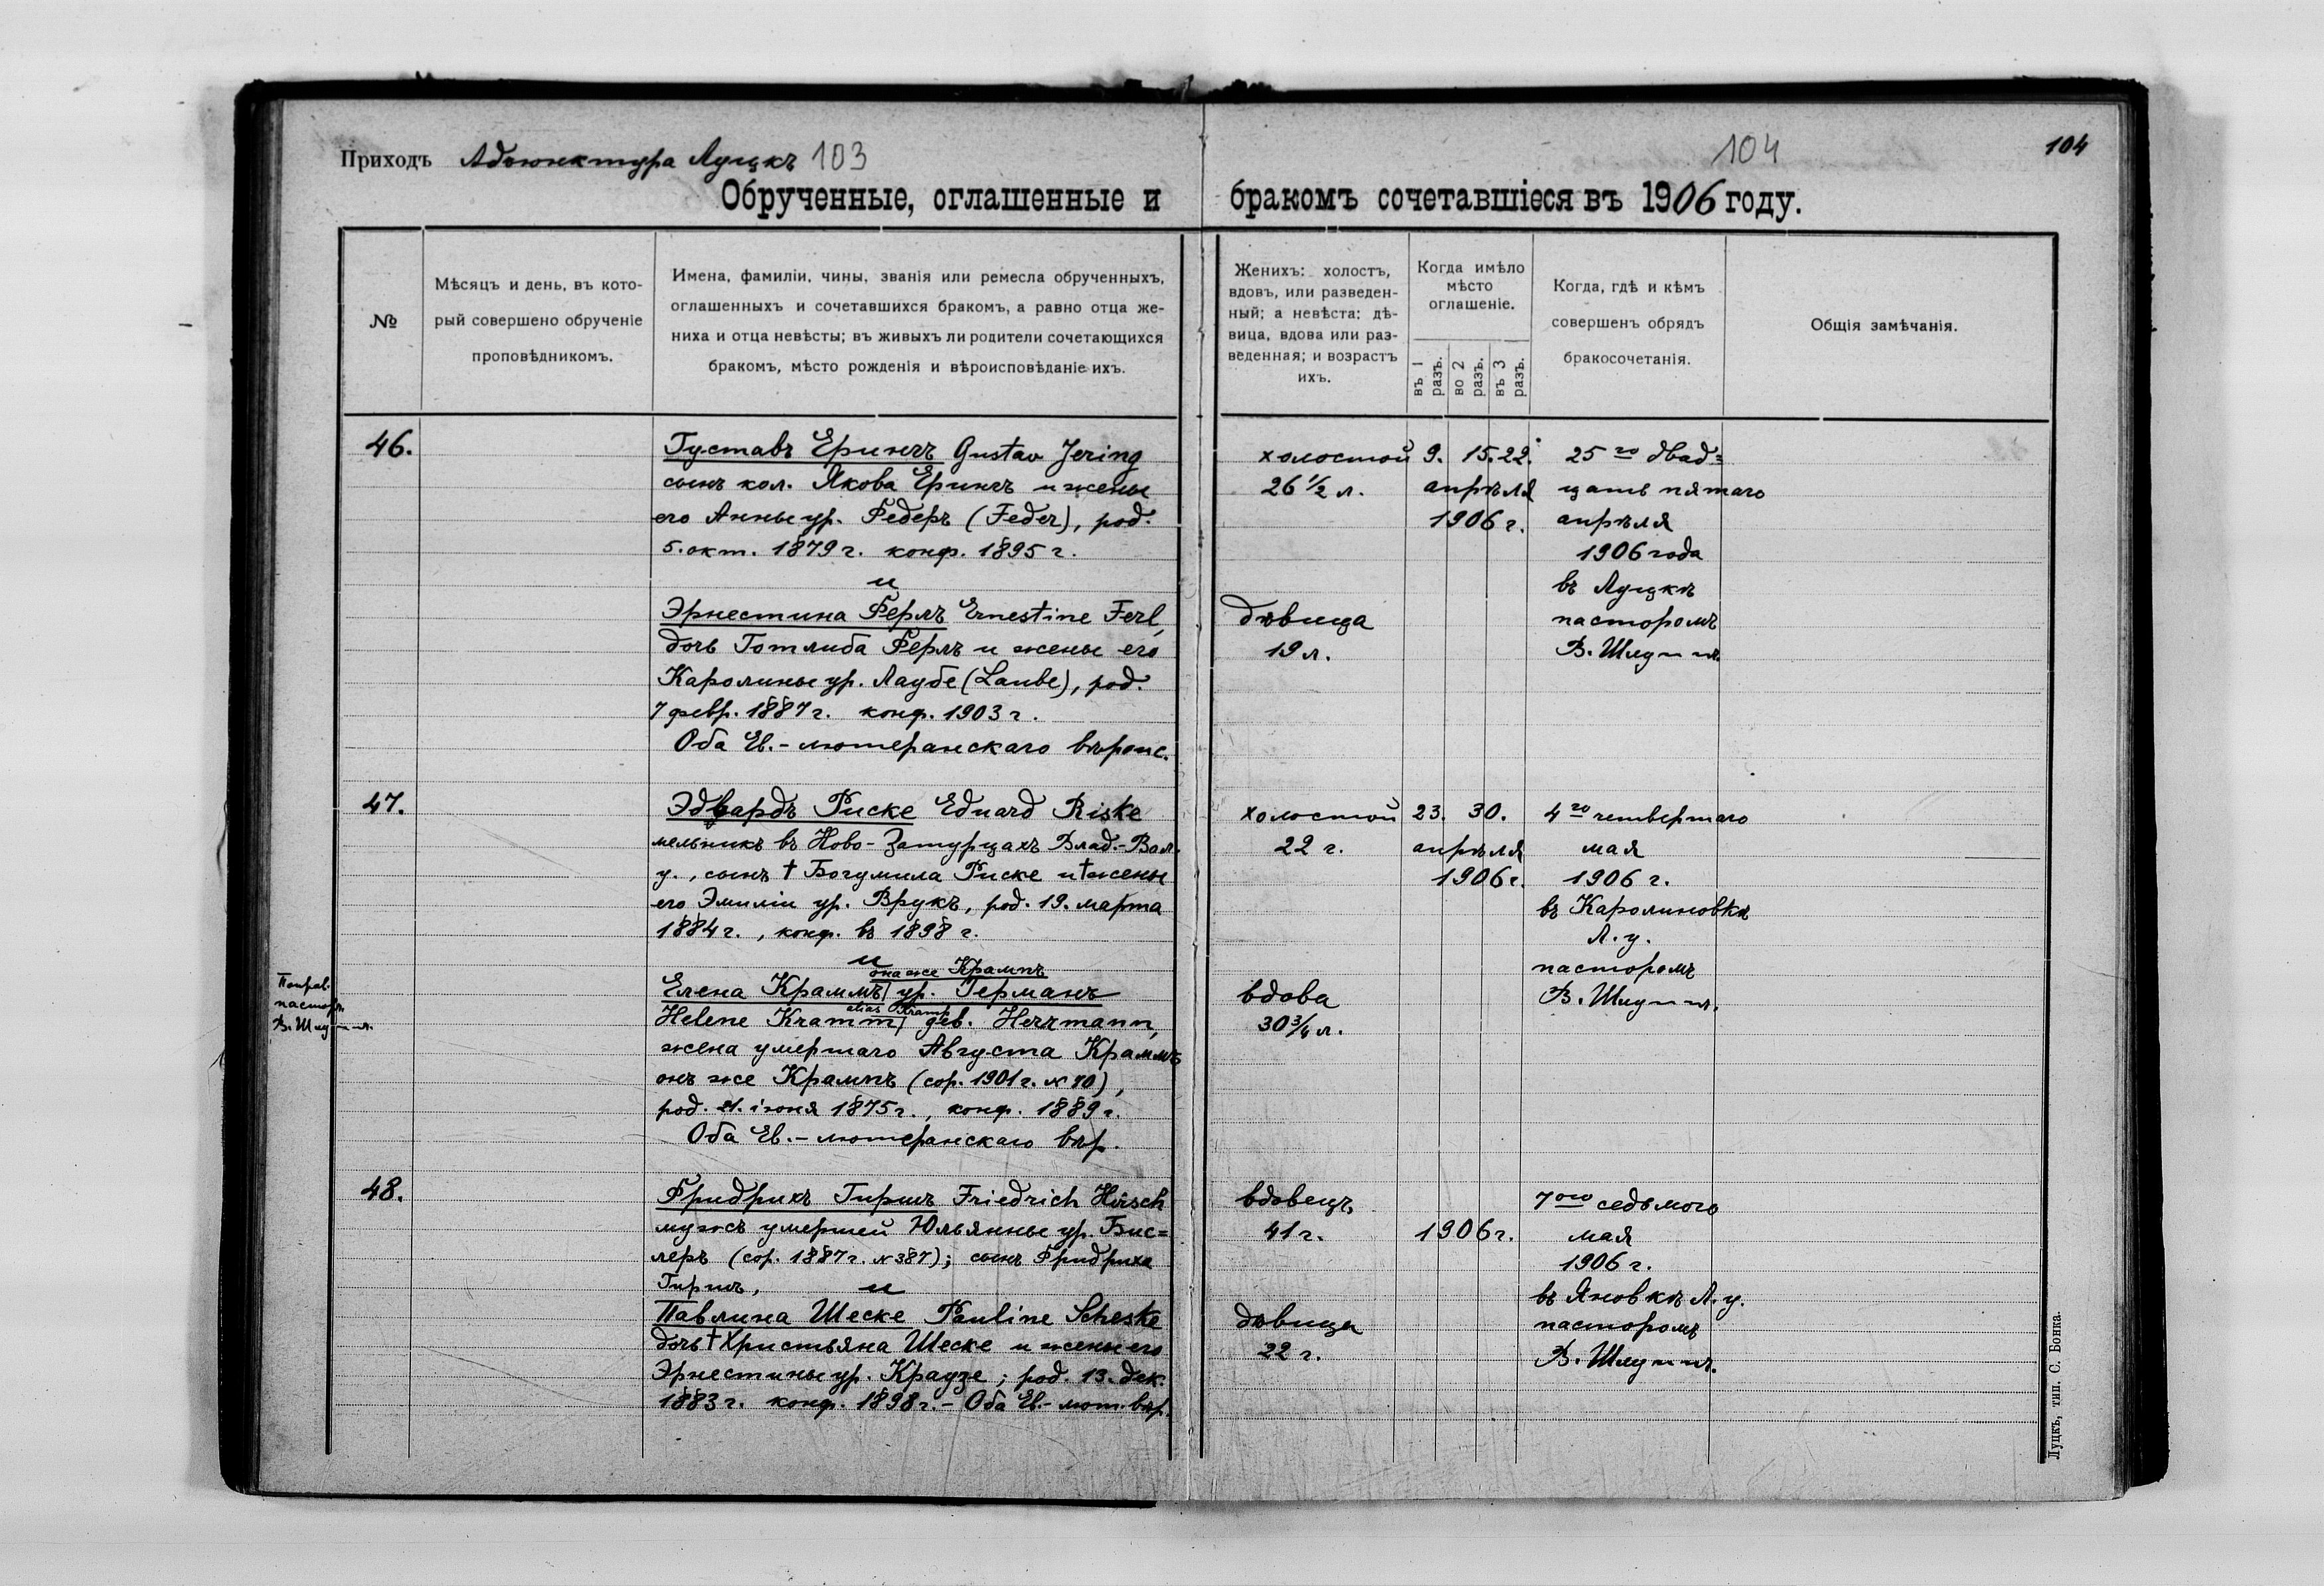 Приходъ Адъюнктура Луцкъ 103
104
104
Обрученные, оглашенные и бракомъ сочетавшіеся въ 1906 году.
№
Мѣсяцъ и день, въ кото-
рый совершено обрученіе
проповѣдникомъ.
Имена, фамиліи, чины, званія или ремесла обрученныхъ,
оглашенныхъ и сочетавшихся бракомъ, а равно отца же-
ниха и отца невѣсты; въ живыхъ ли родители сочетающихся
бракомъ, мѣсто рожденія и вѣроисповѣданіе ихъ.
Женихъ: холостъ,
вдовъ, или разведен-
ный; а невѣста: дѣ-
вица, вдова или раз-
веденная; и возрастъ
ихъ.
Когда имѣло
мѣсто
оглашеніе.
въ 1
разъ.
во 2
разъ.
въ 3
разъ.
Когда, гдѣ и кѣмъ
совершенъ обрядъ
бракосочетанія.
Общія замѣчанія.
46.
Густавъ Ерингъ Gustav Jering
сынъ кол. Якова Ерингъ и жены
его Анны ур. Федеръ (Feder), род.
5. окт. 1879 г. конф. 1895 г.
и
Эрнестина Ферлъ Ernestine Ferl,
дочь Готлиба Ферлъ и жены его
Каролины ур. Лаубе (Laube), род.
7 февр. 1887 г. конф. 1903 г.
Оба Ев.-лютеранскаго вѣроис.
холостой
26 1/2 л.
дѣвица
19 л.
9. 15. 22.
апрѣля
1906 г.
25го двад=
цать пятаго
апрѣля
1906 года
въ Луцкѣ
пасторомъ
В. Шлуппъ
47.
Эдвардъ Риске Eduard Riske
мельникъ въ Ново-Затурцахъ Влад.-Вол.
у., сынъ † Богумила Риске и † жены
его Эмиліи ур. Врукъ, род. 19. марта
1884 г., конф. въ 1898 г.
и
она же Крампъ
Елена Краммъ ур. Германъ
alias Kramp
Helene Kramm geb. Herrmann,
жена умершаго Августа Краммъ
онъ же Крампъ (сор. 1901 г. № 70),
род. 21. іюня 1875 г., конф. 1889 г.
Оба Ев.-лютеранскаго вѣр.
Поправ.
пасторъ
В. Шлуппъ.
холостой
22 г.
вдова
30 3/4 л.
23. 30.
апрѣля
1906 г.
4го четвертаго
мая
1906 г.
въ Каролиновкѣ
Л. у.
пасторомъ
В. Шлуппъ.
48.
Фридрихъ Гиршъ Friedrich Hirsch
мужъ умершей Юльянны ур. Бис=
леръ (сор. 1887 г. № 387); сынъ Фридриха
Гиршъ, и
Павлина Шеске Pauline Scheske
дочь † Христьяна Шеске и жены его
Эрнестины ур. Краузе; род. 13. дек.
1883 г. конф. 1898 г. - Оба Ев.-лют. вѣр.
вдовецъ
41 г.
дѣвица
22 г.
1906 г.
7ого седьмого
мая
1906 г.
въ Яновкѣ Л. у.
пасторомъ
В. Шлуппъ.
Луцкъ, тип. С. Бонка.